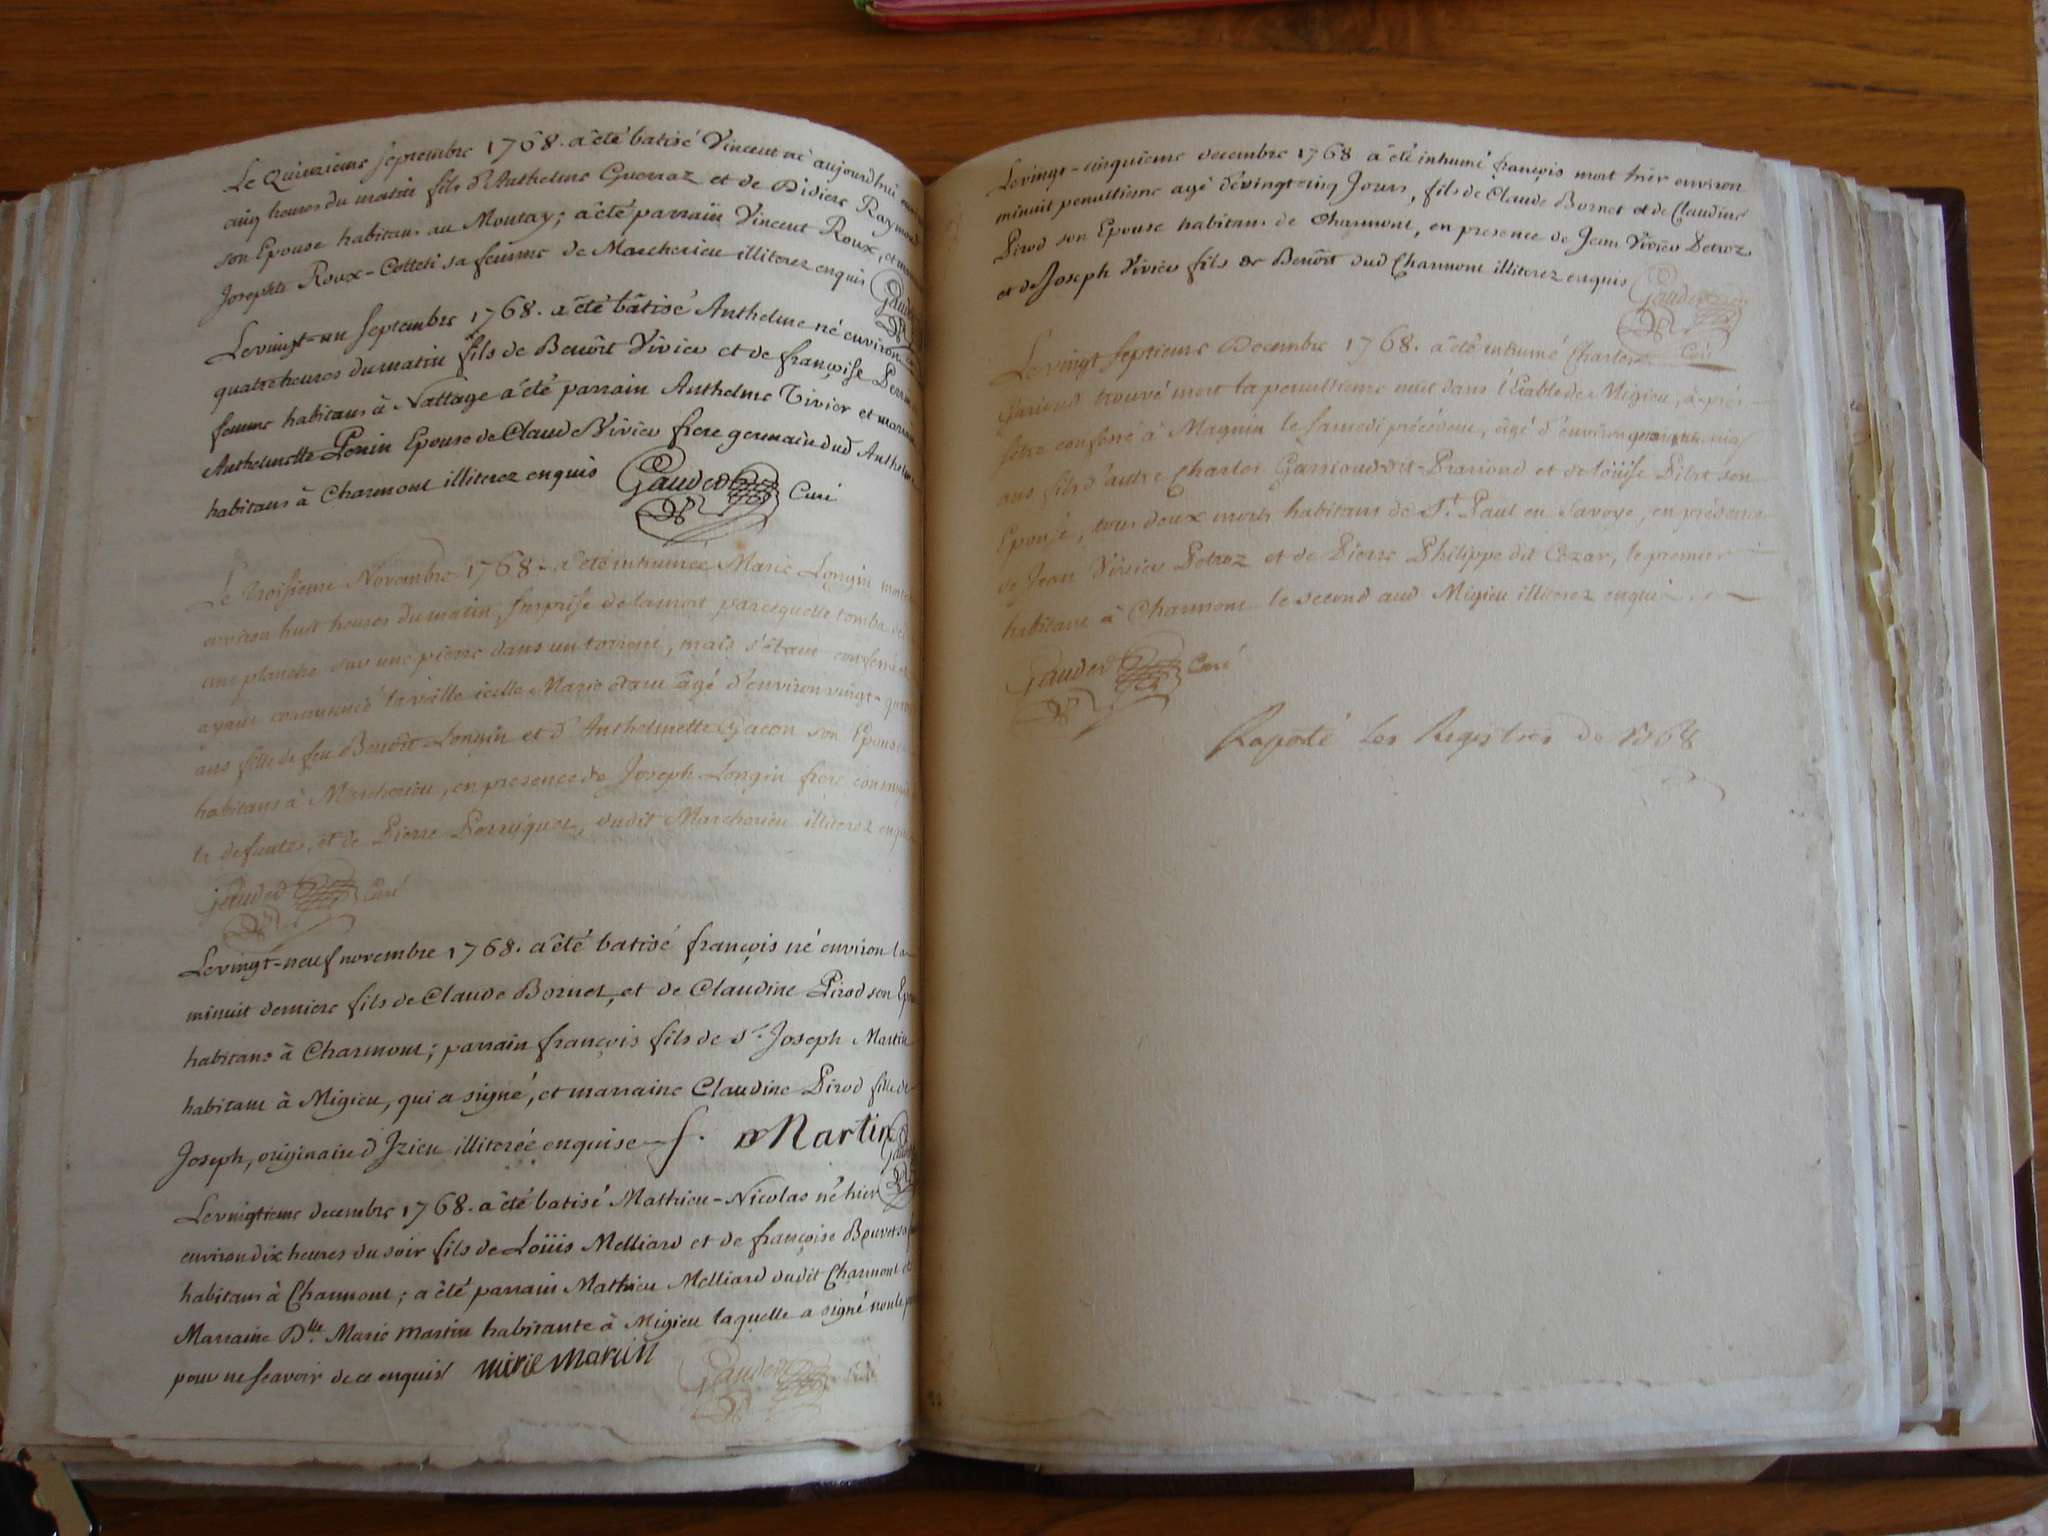 Le Quinzieme septembre 1768. a été batisé Vincent né aujourdhui
cinq heures du matin fils d'Anthelme Guerraz et de Didiere Raymond
son Epouse habitans au Moutay; a été parrain Vincent Roux, et
Josephte Roux-Cotteti sa femme de Marcherieu illiterez enquis Gauded
Le vingt-un septembre 1768. a été bâtisé Anthelme né environ
quatre heures du matin fils de Benoît Vivieu et de françoise
femme habitans à Nattage a été parrain Anthelme Vivier et marraine
Anthelmette Ponin Epouse de Claude Vivieu frere germain dud Anthelme
habitans à Charmont illiterez enquis Gauded Curé
Le troisieme Novembre 1768. a été inhumée Marie Longin morte
environ huit heures du matin, surprise de la mort parcequelle tomba
une planche sur une pierre dans un torrent, mais s'étant confessé et
ayant communié la veille icelle Marie étant âgé d'environ vingt-quatre
ans fille de feu Benoît Longin et d'Anthelmette Gacon son Epouse
habitans à Marcherieu, en presence de Joseph Longin frere
la defunte, et de Pierre Perruquet, dudit Marcherieu illiterez enquis
Gauded Curé
Le vingt-neuf novembre 1768. a été batisé françois né environ la
minuit derniere fils de Claude Bornet, et de Claudine Pirod son Ep
habitans à Charmont; parrain françois fils de Sr. Joseph Martin
habitant à Migieu, qui a signé, et marraine Claudine Pirod fille de
Joseph, originaire d'Izieu illiterée enquise f. Martin Gauded
Le vingtieme decembre 1768. a été batisé Mathieu-Nicolas né hier
environ dix heures du soir fils de Loüis Melliard et de françoise Bouvet
habitans à Charmont; a été parrain Mathieu Melliard dudit Charmont et
Marraine Dlle. Marie Martin habitante à Migieu laquelle a signé non le
pour ne sçavoir de ce enquis marie Martin Gauded Curé
Le vingt-cinquieme decembre 1768 a été inhumé françois mort hier environ
minuit penultieme agé de vingt-cinq Jours, fils de Claude Bornet et de Claudine
Pirod son Epouse habitans de Charmont, en presence de Jean Vivieu Petroz
et de Joseph Vivieu fils de Benoît dud Charmont illiterez enquis Gauded
Curé
Le vingt septieme Decembre 1768. a été inhumé Charles
Garioud trouvé mort la penultieme nuit dans l'Etable de Migieu, après
s'être confessé à Magnin le samedi précédent, âgé d'environ
ans fils d'autre Charles Garrioud dit-Prarioud et de Loüise Pilat son
Epouse, tous deux morts habitans de St. Paul en Savoye, en présence
de Jean Vivieu Petroz et de Pierre Philippe dit Cezar, le premier
habitant à Charmont le second aud Migieu illiterez enquis
Gauded Curé
les Registres de 1768